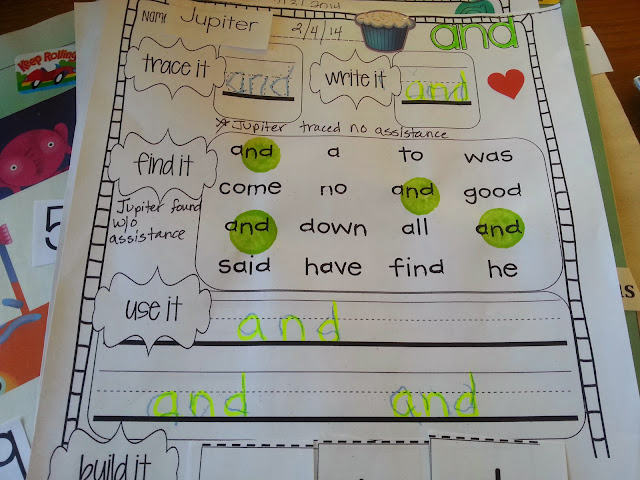 Keep Rolling
NAME Jupiter 2/4/14 and
trace it and write it and
* Jupiter traced no assistance
find it
and a to was
come no and good
and down all and
said have find he
Jupiter found
w/o
assistance
use it
and
and and
build it
5
9